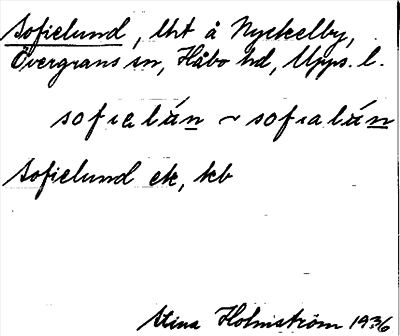 Sofielund, lht å Nyckelby,
Övergrans sn, Håbo hd, Upps. l.
sofialún ~ sofialún
Sofielund ek, kb
Stina Holmström 1936